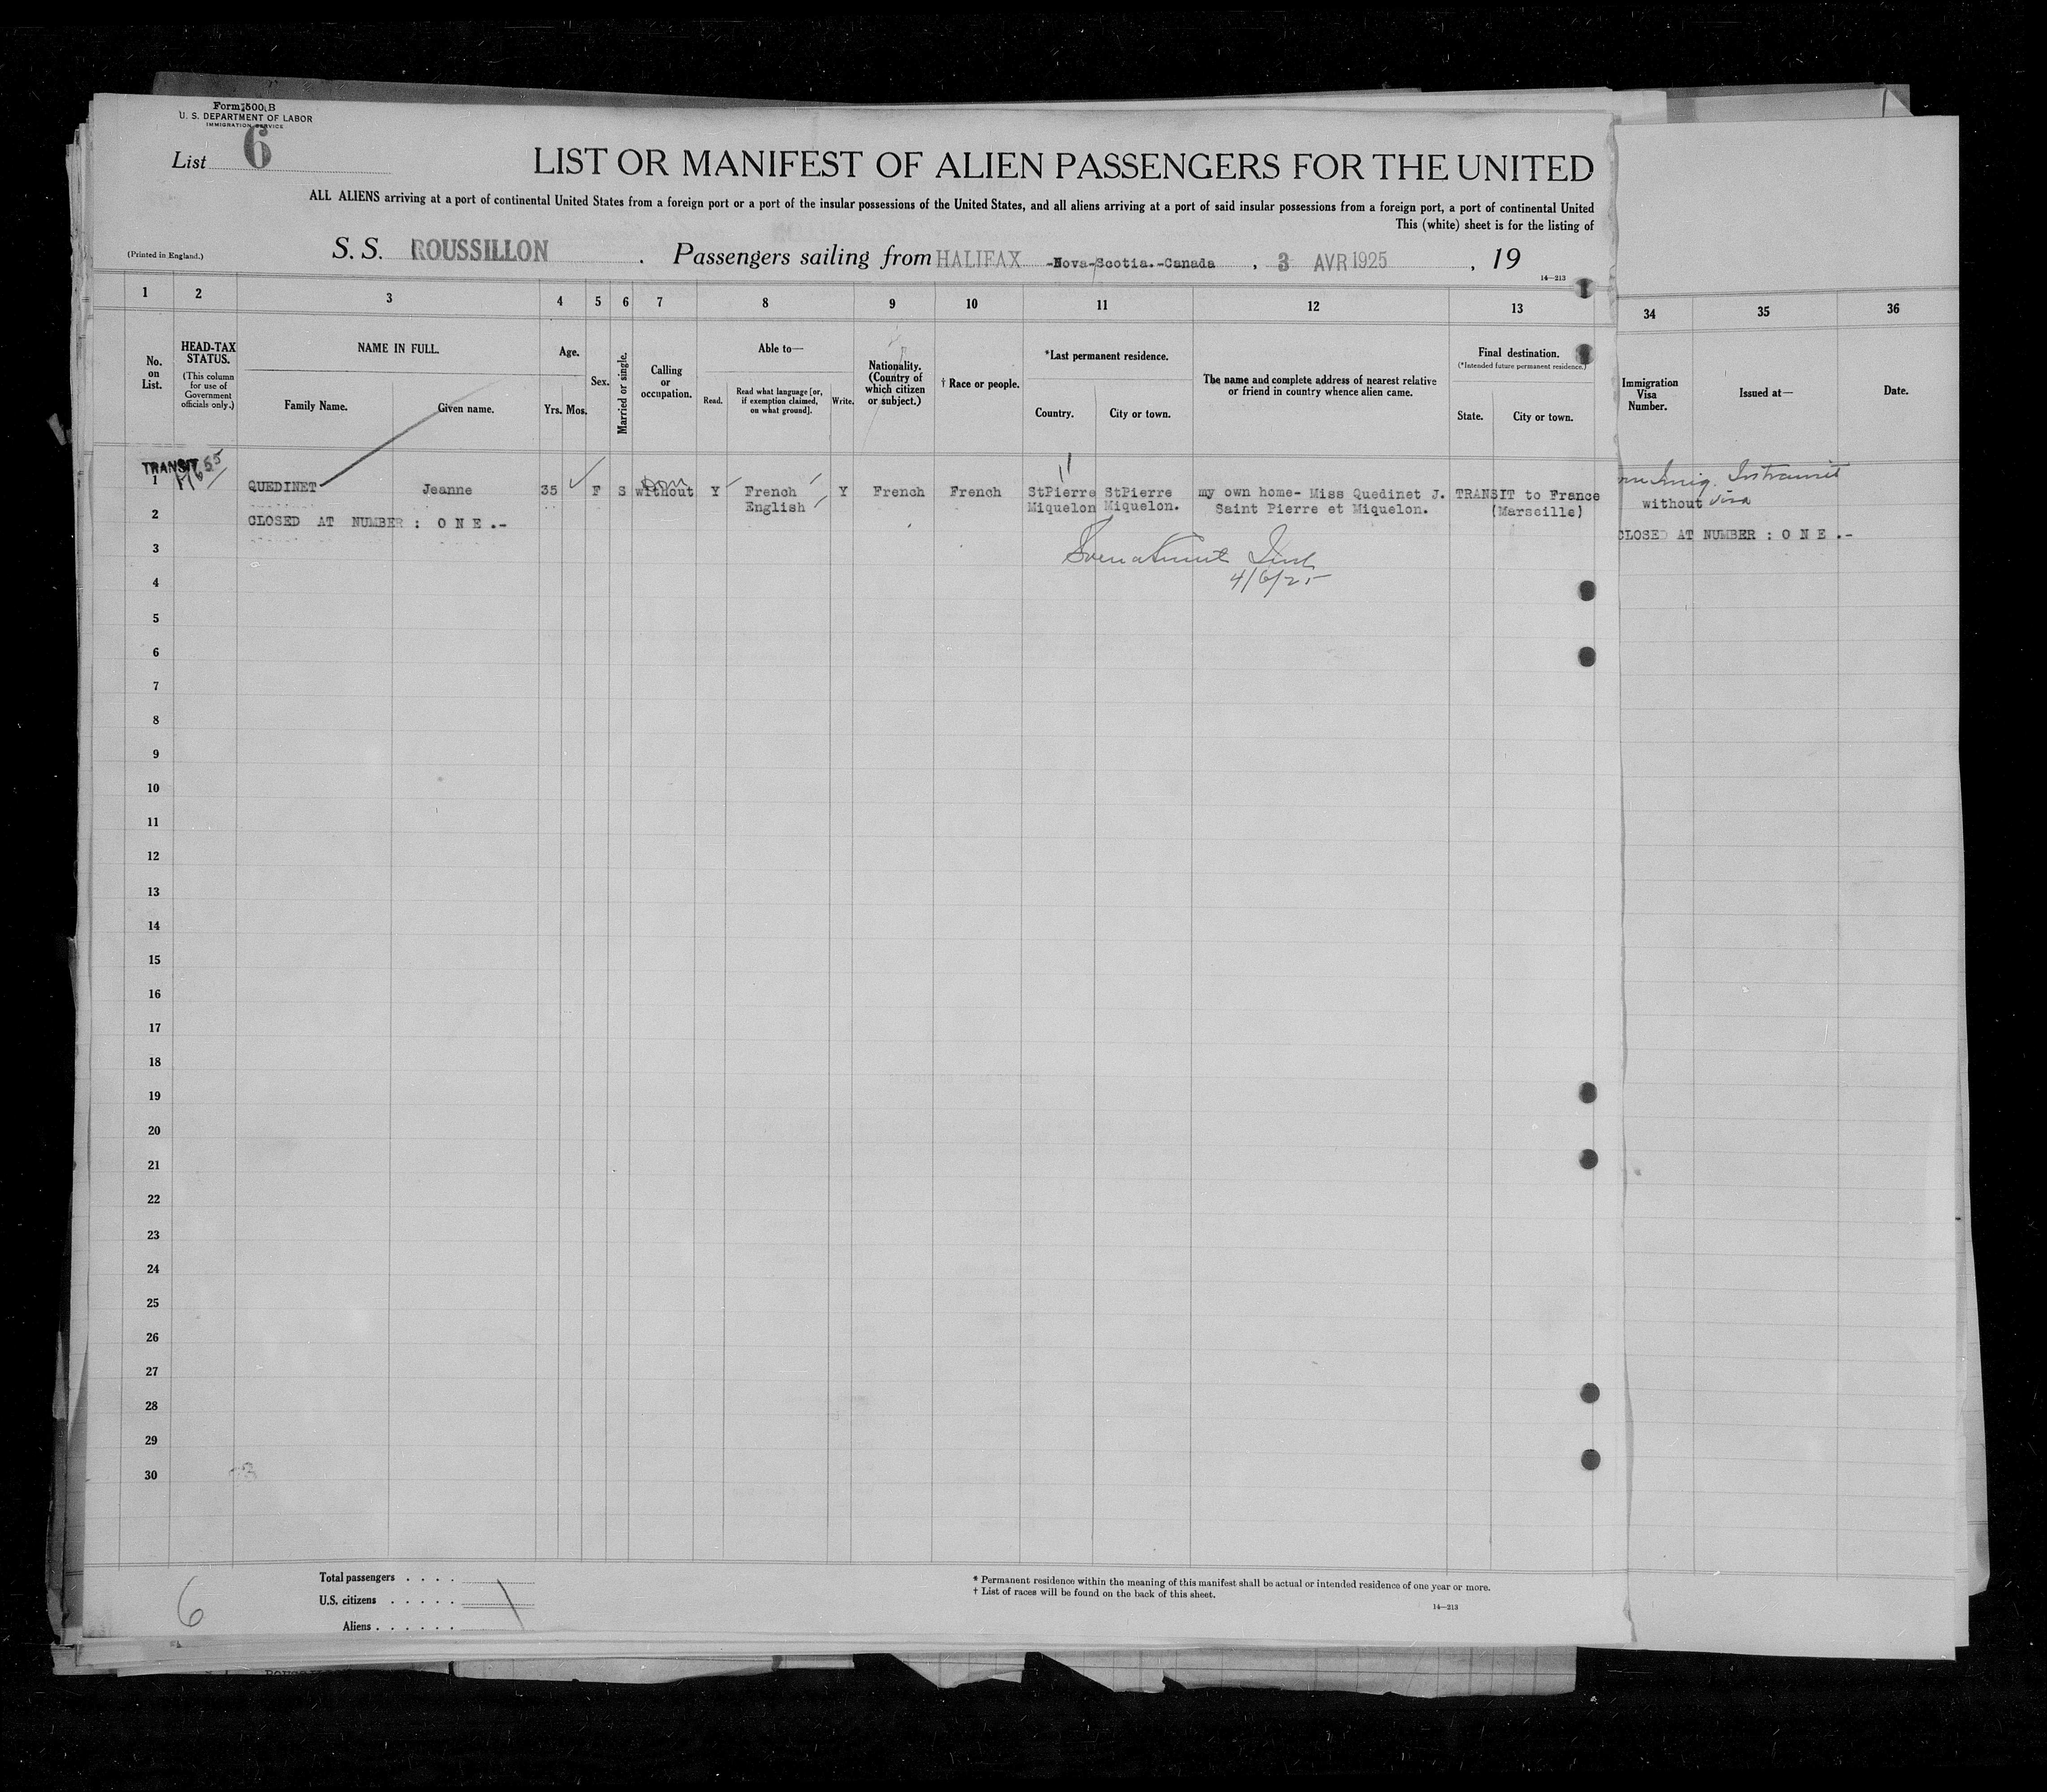 Form 500 B
U. S. DEPARTMENT OF LABOR
IMMIGRATION SERVICE
List 6
LIST OR MANIFEST OF ALIEN PASSENGERS FOR THE UNITED
ALL ALIENS arriving at a port of continental United States from a foreign port or a port of the insular possessions of the United States, and all aliens arriving at a port of said insular possessions from a foreign port, a port of continental United
This (white) sheet is for the listing of
(Printed in England.)
S. S. ROUSSILLON . Passengers sailing from HALIFAX -Nova-Scotia.-Canada , 3 AVR 1925 , 19
14—213
1 2 3 4 5 6 7 8 9 10 11 12 13 34 35 36
No. on List.
HEAD-TAX STATUS.
(This column for use of Government officials only.)
NAME IN FULL.
Family Name. Given name.
Age.
Yrs. Mos.
Sex.
Married or single.
Calling or occupation.
Able to—
Read. Read what language [or, if exemption claimed, on what ground]. Write.
Nationality. (Country of which citizen or subject.)
† Race or people.
*Last permanent residence.
Country. City or town.
The name and complete address of nearest relative or friend in country whence alien came.
Final destination.
(*Intended future permanent residence.)
State. City or town.
Immigration Visa Number.
Issued at—
Date.
TRANSIT
1 QUEDINET Jeanne 35 F S without Y French Y French French StPierre StPierre my own home- Miss Quedinet J. TRANSIT to France
English Miquelon Miquelon. Saint Pierre et Miquelon. (Marseille)
Intransit
without visa
2 CLOSED AT NUMBER : O N E .-
CLOSED AT NUMBER : O N E .-
4/6/25
3
4
5
6
7
8
9
10
11
12
13
14
15
16
17
18
19
20
21
22
23
24
25
26
27
28
29
30
6
Total passengers . . . .
U.S. citizens . . . . .
Aliens . . . . . .
* Permanent residence within the meaning of this manifest shall be actual or intended residence of one year or more.
† List of races will be found on the back of this sheet.
14—213